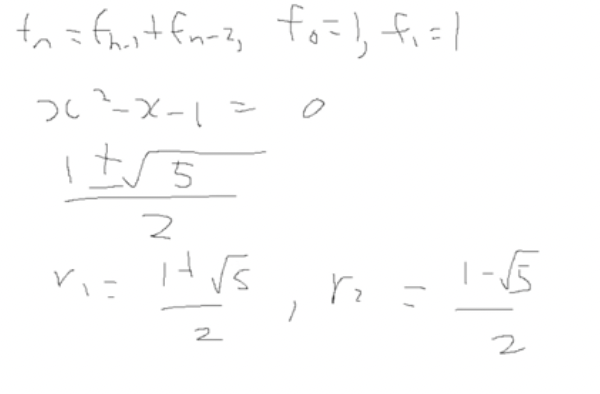 fₙ = fₙ₋₁ + fₙ₋₂, f₀ = 1, f₁ = 1
x² - x - 1 = 0
(1 ± √5) / 2
r₁ = (1 + √5) / 2, r₂ = (1 - √5) / 2